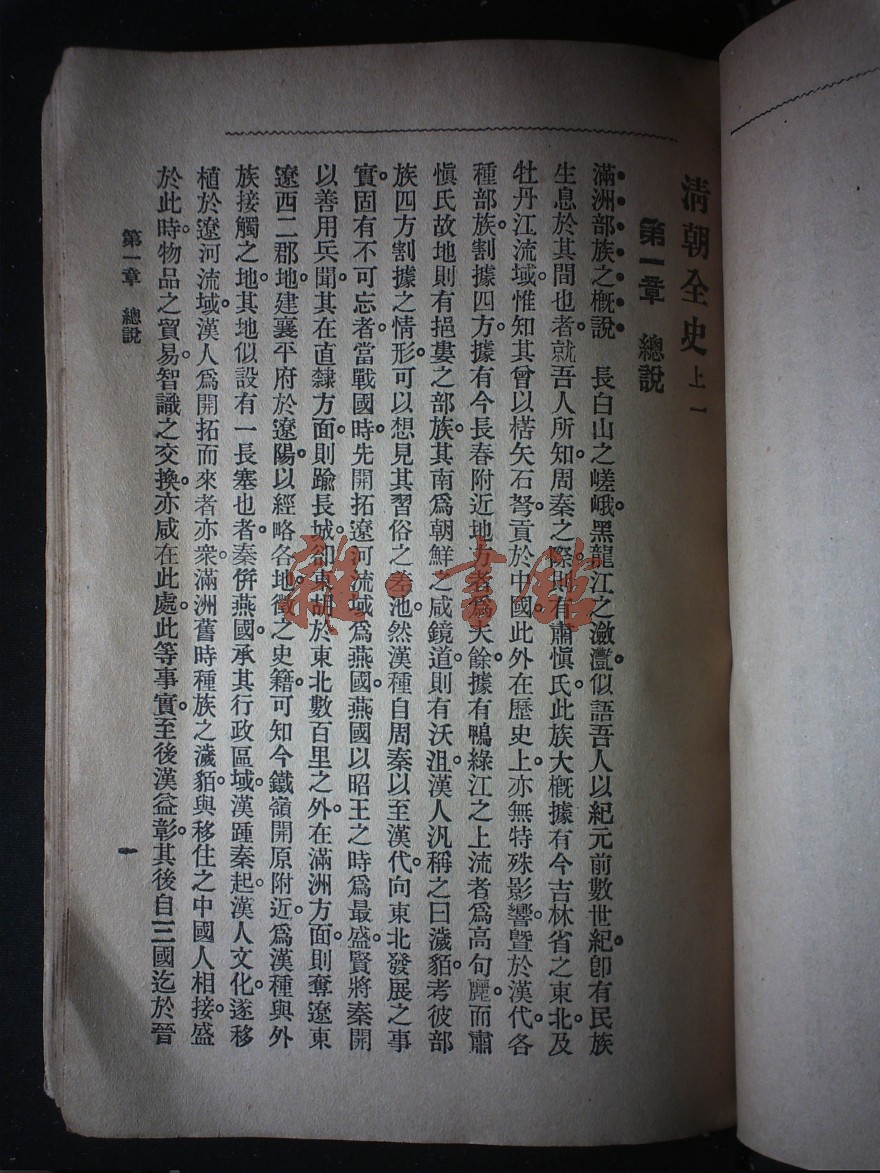 清朝全史 上一
第一章 總說
滿洲部族之概說 長白山之嵯峨。黑龍江之瀲灩。似語吾人以紀元前數世紀。卽有民族
生息於其間也者。就吾人所知。周秦之際。則有肅愼氏。此族大概據有今吉林省之東北。及
牡丹江流域。惟知其曾以楛矢石砮。貢於中國。此外在歷史上。亦無特殊影響。曁於漢代。各
種部族。割據四方。據有今長春附近地方者。爲夫餘。據有鴨綠江之上流者。爲高句麗。而肅
愼氏故地。則有挹婁之部族。其南爲朝鮮之咸鏡道。則有沃沮。漢人汎稱之曰濊貊。考彼部
族四方割據之情形。可以想見其習俗之差池。然漢種自周秦以至漢代。向東北發展之事
實。固有不可忘者。當戰國時。先開拓遼河流域。爲燕國。燕國以昭王之時爲最盛。賢將秦開
以善用兵聞。其在直隸方面。則踰長城。卻東胡於東北數百里之外。在滿洲方面。則奪遼東
遼西二郡地。建襄平府於遼陽。以經略各地。徵之史籍。可知今鐵嶺開原附近。爲漢種與外
族接觸之地。其地似設有一長塞也者。秦併燕國。承其行政區域。漢踵秦起。漢人文化。遂移
植於遼河流域。漢人爲開拓而來者亦衆。滿洲舊時種族之濊貊。與移住之中國人相接。盛
於此時。物品之貿易。智識之交換。亦咸在此處。此等事實。至後漢益彰。其後自三國迄於晉
第一章 總說
一
雜·書館